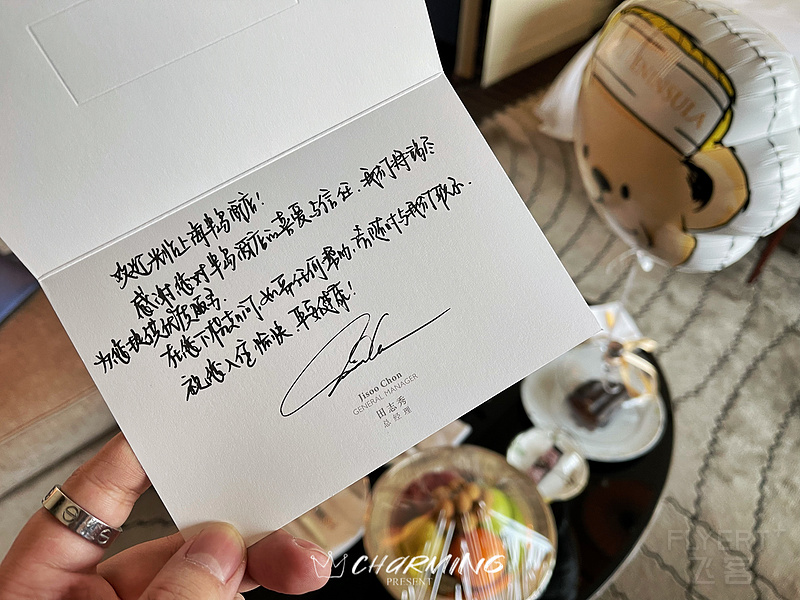 欢迎光临上海半岛酒店!
感谢您对半岛酒店的喜爱与信任,我们将竭尽
为您提供优质服务.
在您下榻期间如有任何帮助,请随时与我们联系.
祝您入住愉快,平安健康!
Jisoo Chon
GENERAL MANAGER
田志秀
总经理
PENINSULA
CHARMING
PRESENT
FLYERT
飞客